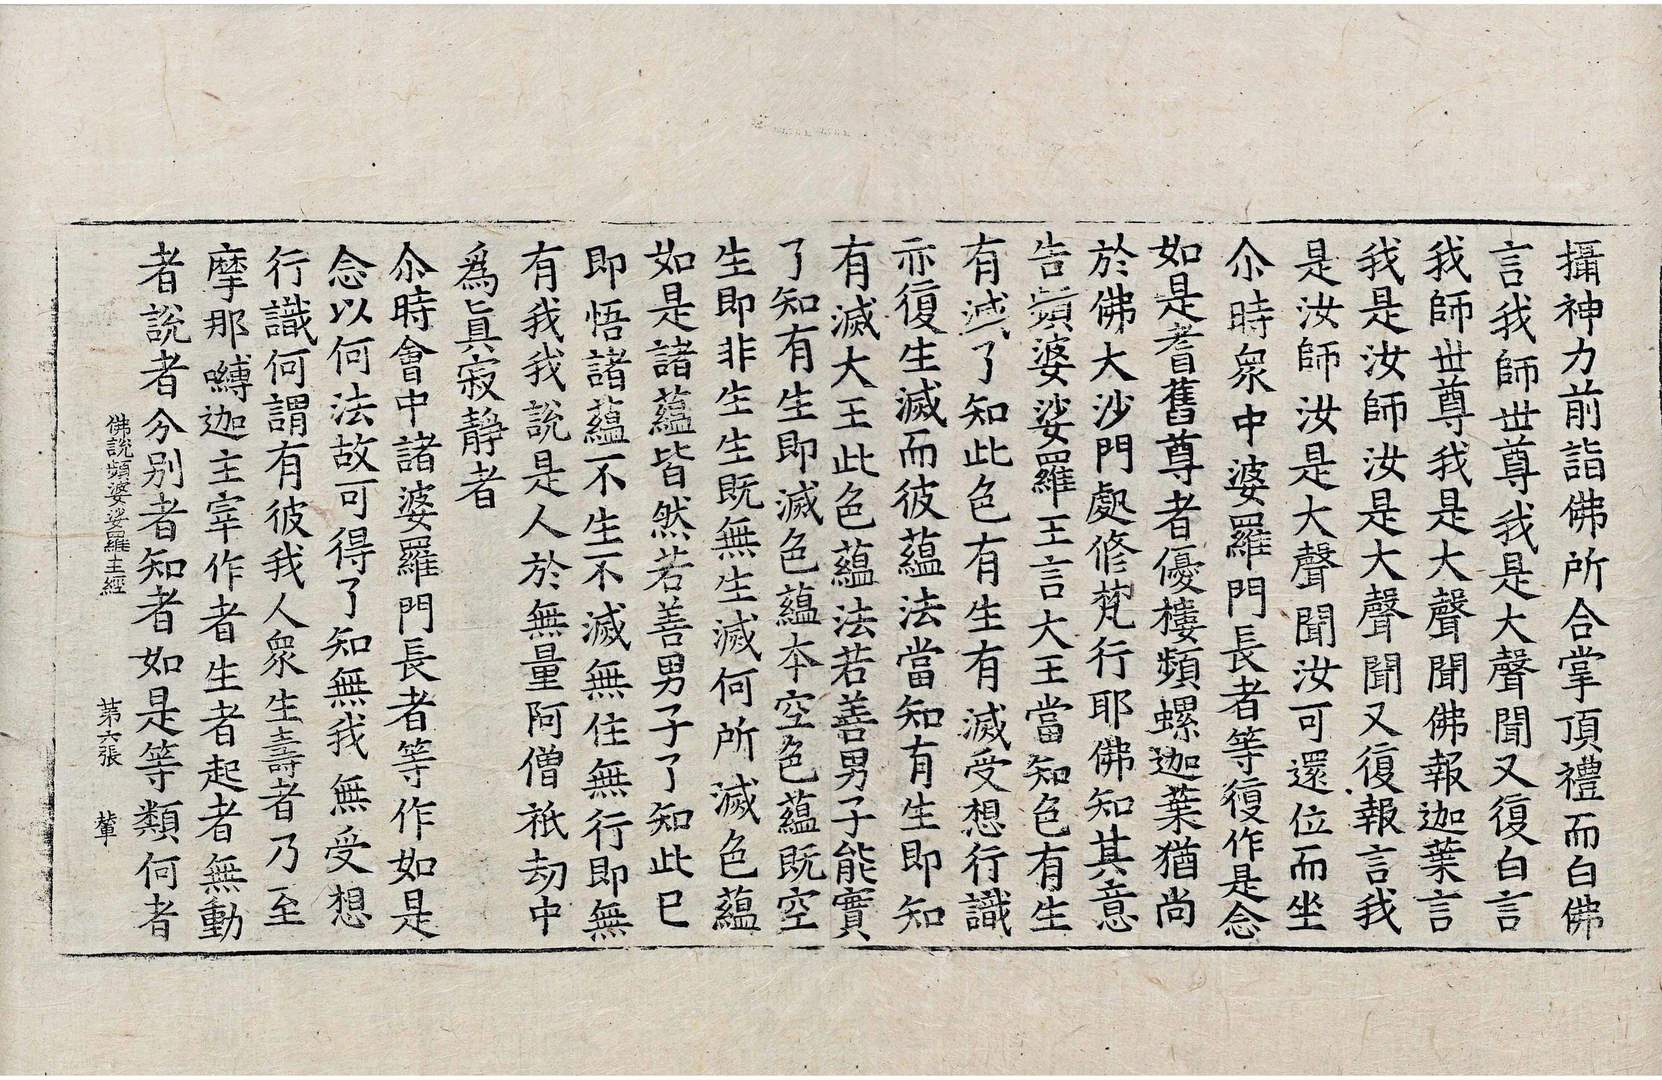 攝神力前詣佛所合掌頂禮而白佛
言我師世尊我是大聲聞又復白言
我師世尊我是大聲聞佛報迦葉言
我是汝師汝是大聲聞又復報言我
是汝師汝是大聲聞汝可還位而坐
尒時衆中婆羅門長者等復作是念
如是耆舊尊者優樓頻螺迦葉猶尚
於佛大沙門處修梵行耶佛知其意
告頻婆娑羅王言大王當知色有生
有滅了知此色有生有滅受想行識
亦復生滅而彼蘊法當知有生即知
有滅大王此色蘊法若善男子能實
了知有生即滅色蘊本空色蘊既空
生即非生生既無生滅何所滅色蘊
如是諸蘊皆然若善男子了知此已
即悟諸蘊不生不滅無住無行即無
有我我說是人於無量阿僧祇劫中
爲眞寂靜者
尒時會中諸婆羅門長者等作如是
念以何法故可得了知無我無受想
行識何謂有彼我人衆生壽者乃至
摩那嚩迦主宰作者生者起者無動
者說者分別者知者如是等類何者
佛說頻婆娑羅王經 第六張 輦